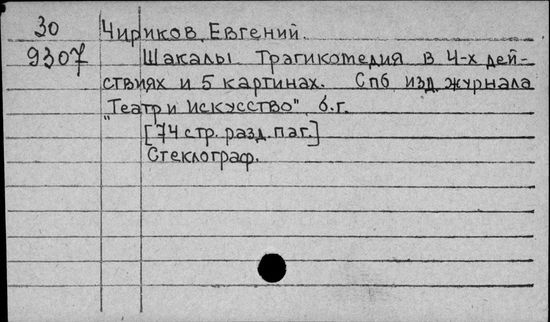 30 Чириков, Евгений.
9307 Шакалы. Трагикомедия в 4-х дей-
ствиях и 5 картинах. Спб изд. журнала
"Театр и искусство", б.г.
[74 стр. разд. паг.]
Стеклограф.